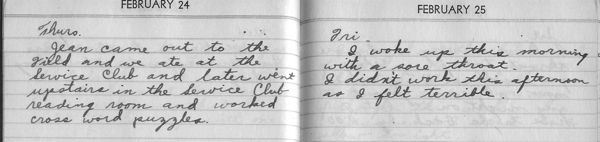 FEBRUARY 24
Thurs.
Jean came out to the
field and we ate at the
Service Club and later went
upstairs in the Service Club
reading room and worked
cross word puzzles.
FEBRUARY 25
Fri.
I woke up this morning
with a sore throat.
I didn't work this afternoon
as I felt terrible.